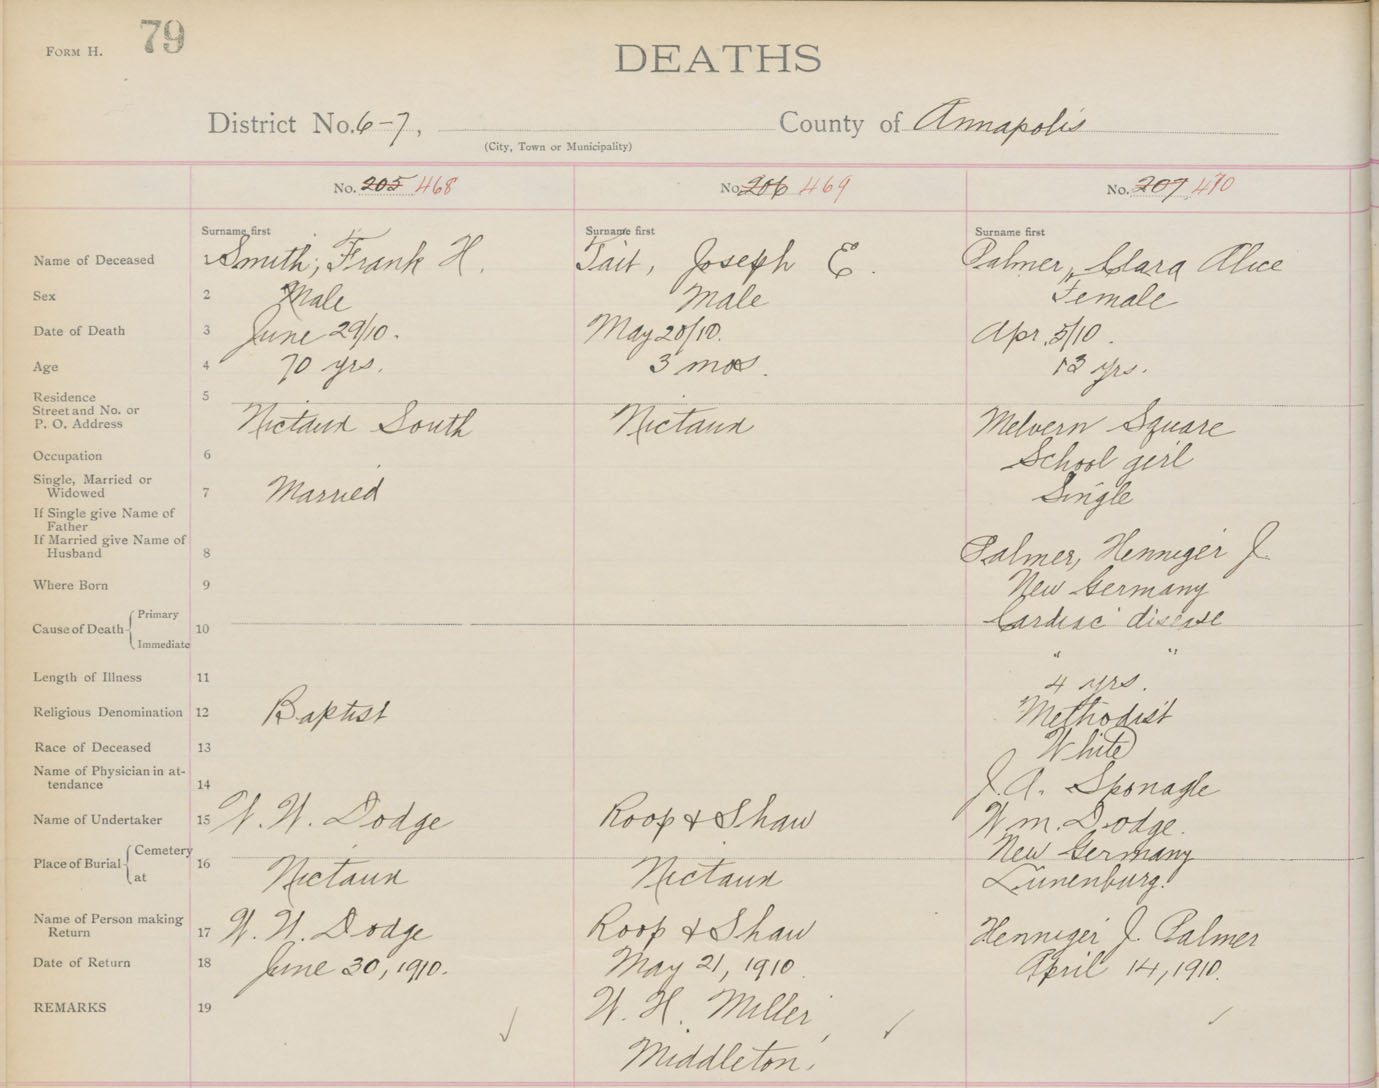 FORM H. 79
DEATHS
District No. 6-7, County of Annapolis
(City, Town or Municipality)
No. 205 468 No. 206 469 No. 207 470
Surname first Surname first Surname first
Name of Deceased 1 Smith, Frank H. Tait, Joseph E. Palmer, Clara Alice
Sex 2 Male Male Female
Date of Death 3 June 29/10. May 20/10. Apr. 5/10.
Age 4 70 yrs. 3 mos. 13 yrs.
Residence 5
Street and No. or
P. O. Address Nictaux South Nictaux Melvern Square
Occupation 6 School girl
Single, Married or
Widowed 7 Married Single
If Single give Name of
Father
If Married give Name of
Husband 8 Palmer, Henniger J.
Where Born 9 New Germany
Cause of Death Primary 10 Cardiac disease
Immediate " "
Length of Illness 11 4 yrs.
Religious Denomination 12 Baptist Methodist
Race of Deceased 13 White
Name of Physician in at-
tendance 14 J. A. Sponagle
Name of Undertaker 15 W. W. Dodge Roop & Shaw Wm. Dodge.
Place of Burial Cemetery 16 New Germany
at Nictaux Nictaux Lunenburg.
Name of Person making
Return 17 W. W. Dodge Roop & Shaw Henniger J. Palmer
Date of Return 18 June 30, 1910. May 21, 1910 April 14, 1910.
REMARKS 19 W. H. Miller,
Middleton.